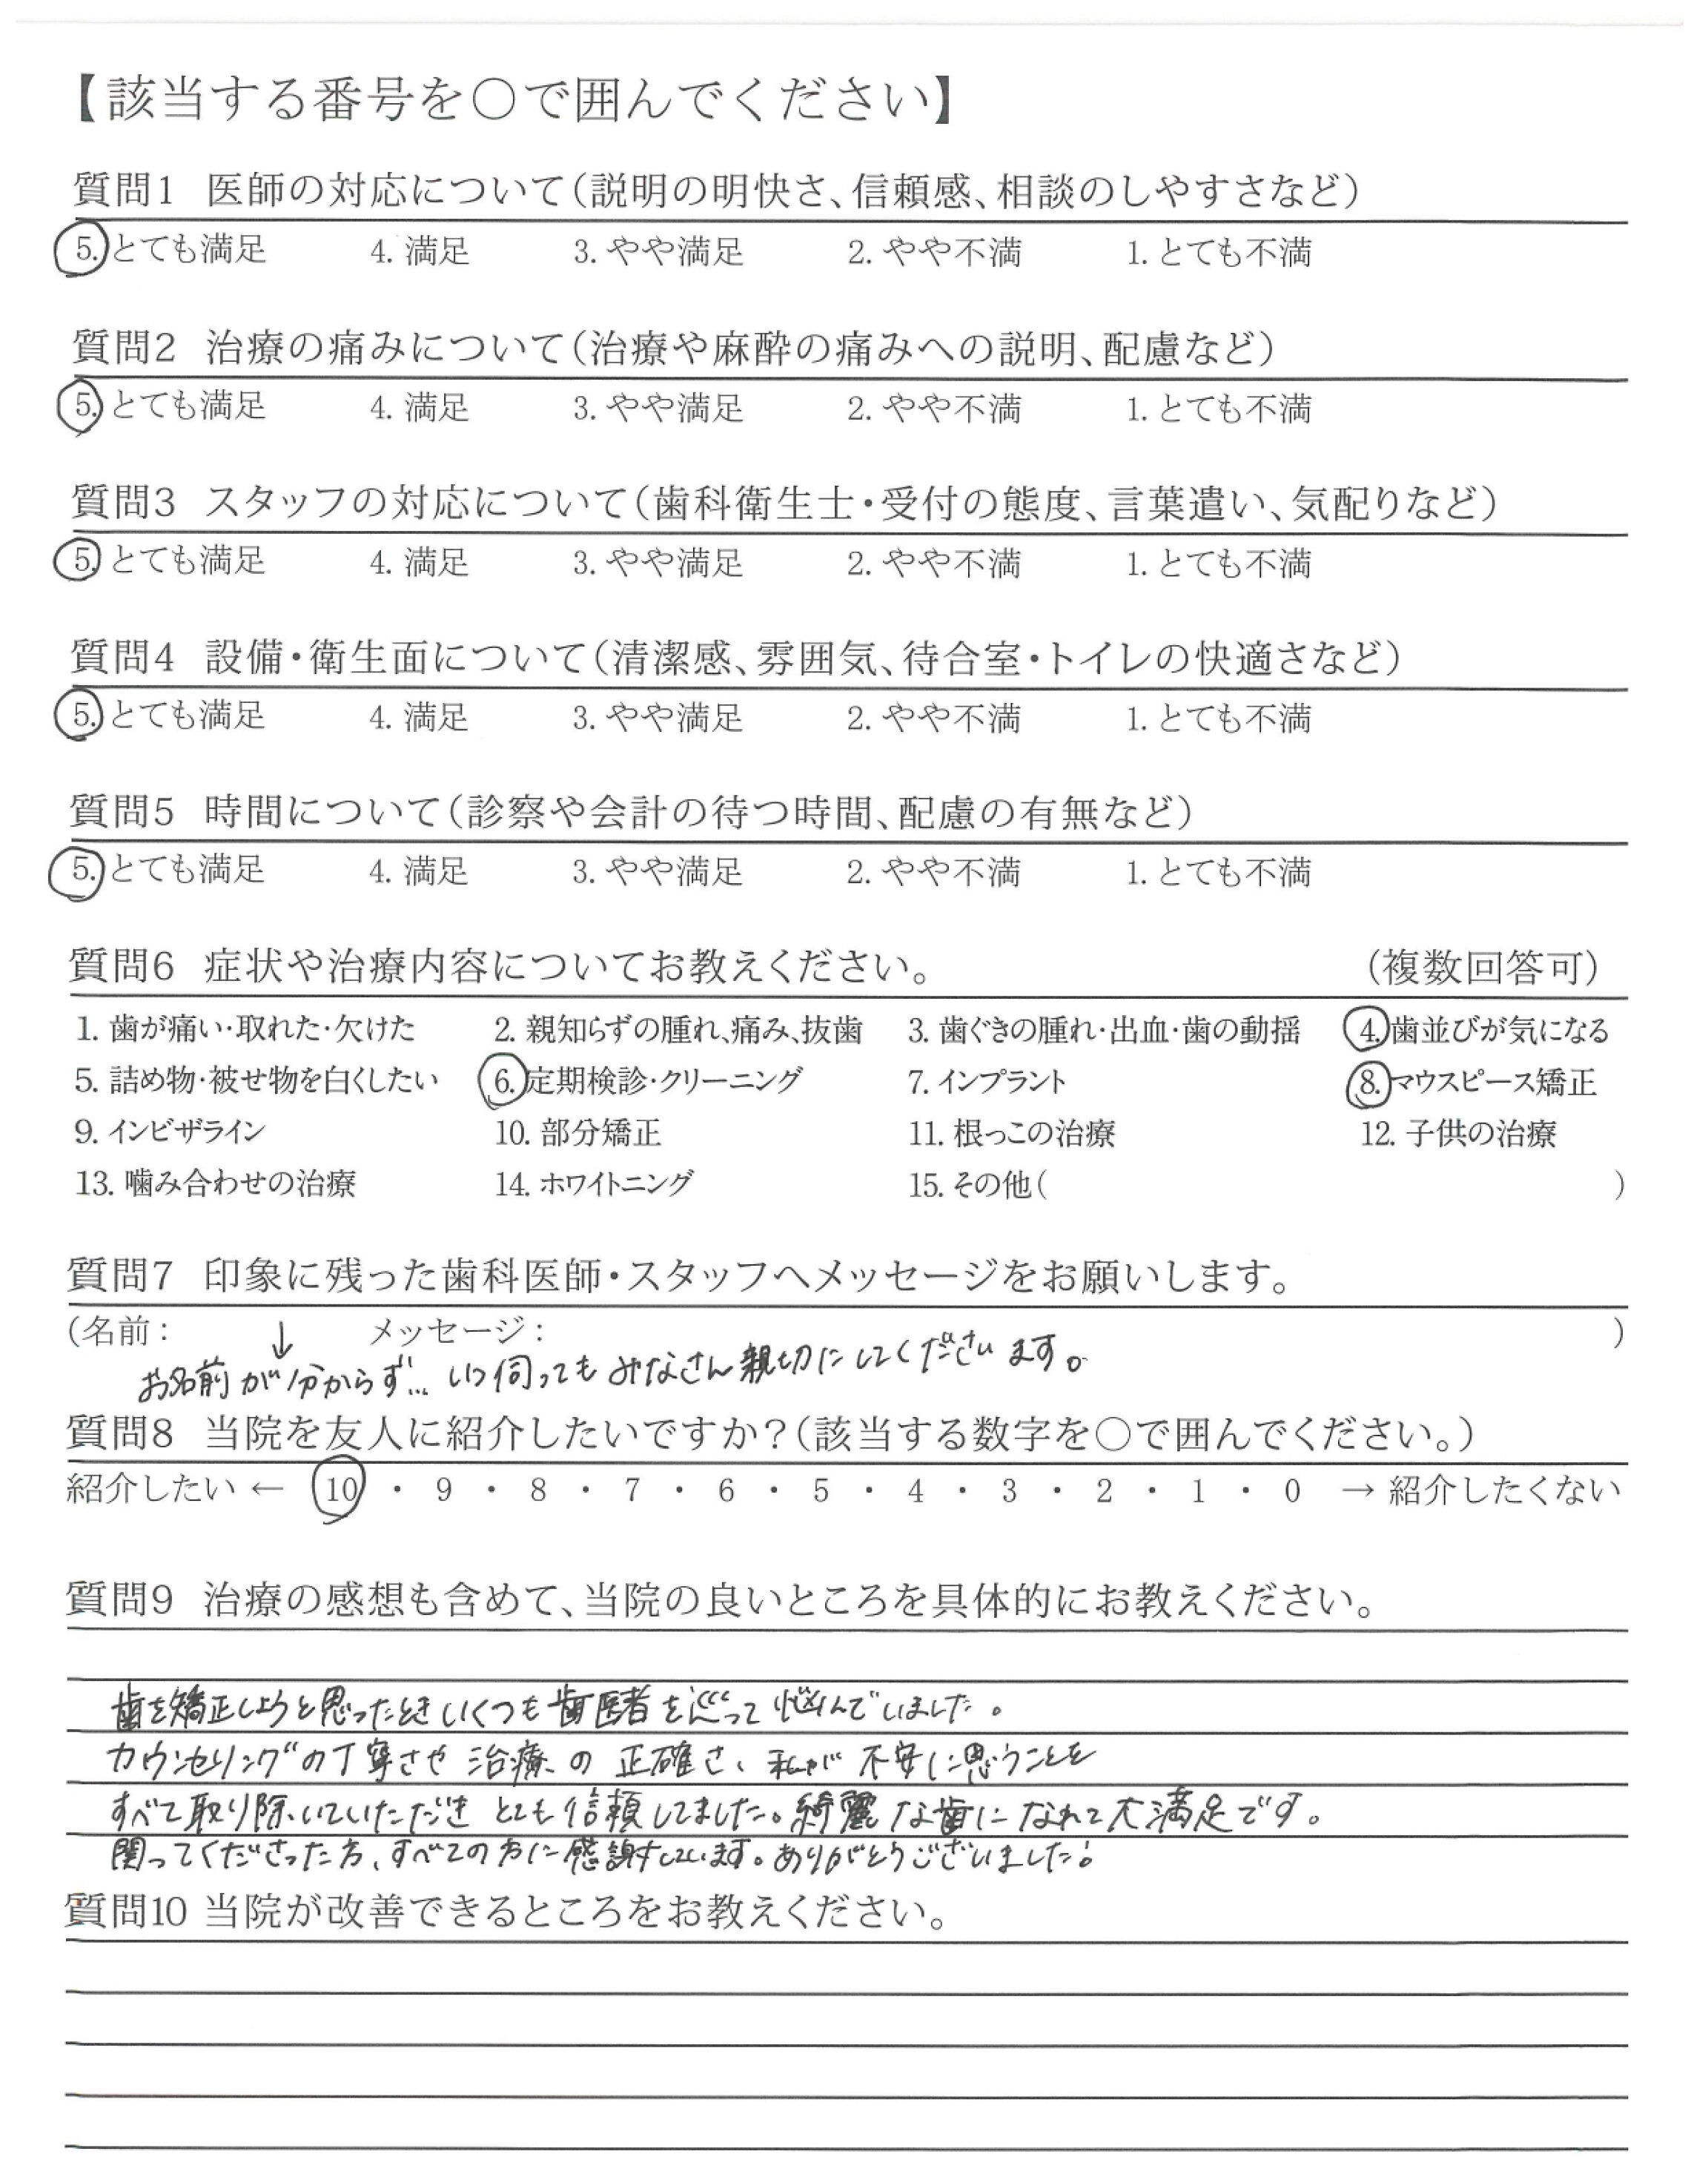 【該当する番号を○で囲んでください】
質問1 医師の対応について(説明の明快さ、信頼感、相談のしやすさなど)
5. とても満足 4. 満足 3. やや満足 2. やや不満 1. とても不満
質問2 治療の痛みについて(治療や麻酔の痛みへの説明、配慮など)
5. とても満足 4. 満足 3. やや満足 2. やや不満 1. とても不満
質問3 スタッフの対応について(歯科衛生士・受付の態度、言葉遣い、気配りなど)
5. とても満足 4. 満足 3. やや満足 2. やや不満 1. とても不満
質問4 設備・衛生面について(清潔感、雰囲気、待合室・トイレの快適さなど)
5. とても満足 4. 満足 3. やや満足 2. やや不満 1. とても不満
質問5 時間について(診察や会計の待つ時間、配慮の有無など)
5. とても満足 4. 満足 3. やや満足 2. やや不満 1. とても不満
質問6 症状や治療内容についてお教えください。 (複数回答可)
1. 歯が痛い・取れた・欠けた 2. 親知らずの腫れ、痛み、抜歯 3. 歯ぐきの腫れ・出血・歯の動揺 4. 歯並びが気になる
5. 詰め物・被せ物を白くしたい 6. 定期検診・クリーニング 7. インプラント 8. マウスピース矯正
9. インビザライン 10. 部分矯正 11. 根っこの治療 12. 子供の治療
13. 噛み合わせの治療 14. ホワイトニング 15. その他( )
質問7 印象に残った歯科医師・スタッフへメッセージをお願いします。
(名前: ↓ メッセージ: )
お名前が分からず… いつ伺ってもみなさん親切にしてくださいます。
質問8 当院を友人に紹介したいですか?(該当する数字を○で囲んでください。)
紹介したい ← 10 ・ 9 ・ 8 ・ 7 ・ 6 ・ 5 ・ 4 ・ 3 ・ 2 ・ 1 ・ 0 → 紹介したくない
質問9 治療の感想も含めて、当院の良いところを具体的にお教えください。
歯を矯正しようと思ったときいくつも歯医者を巡って悩んでいました。
カウンセリングの丁寧さや治療の正確さ、私が不安に思うことを
すべて取り除いていただきとても信頼してました。綺麗な歯になれて大満足です。
関ってくださった方、すべての方に感謝しています。ありがとうございました!
質問10 当院が改善できるところをお教えください。